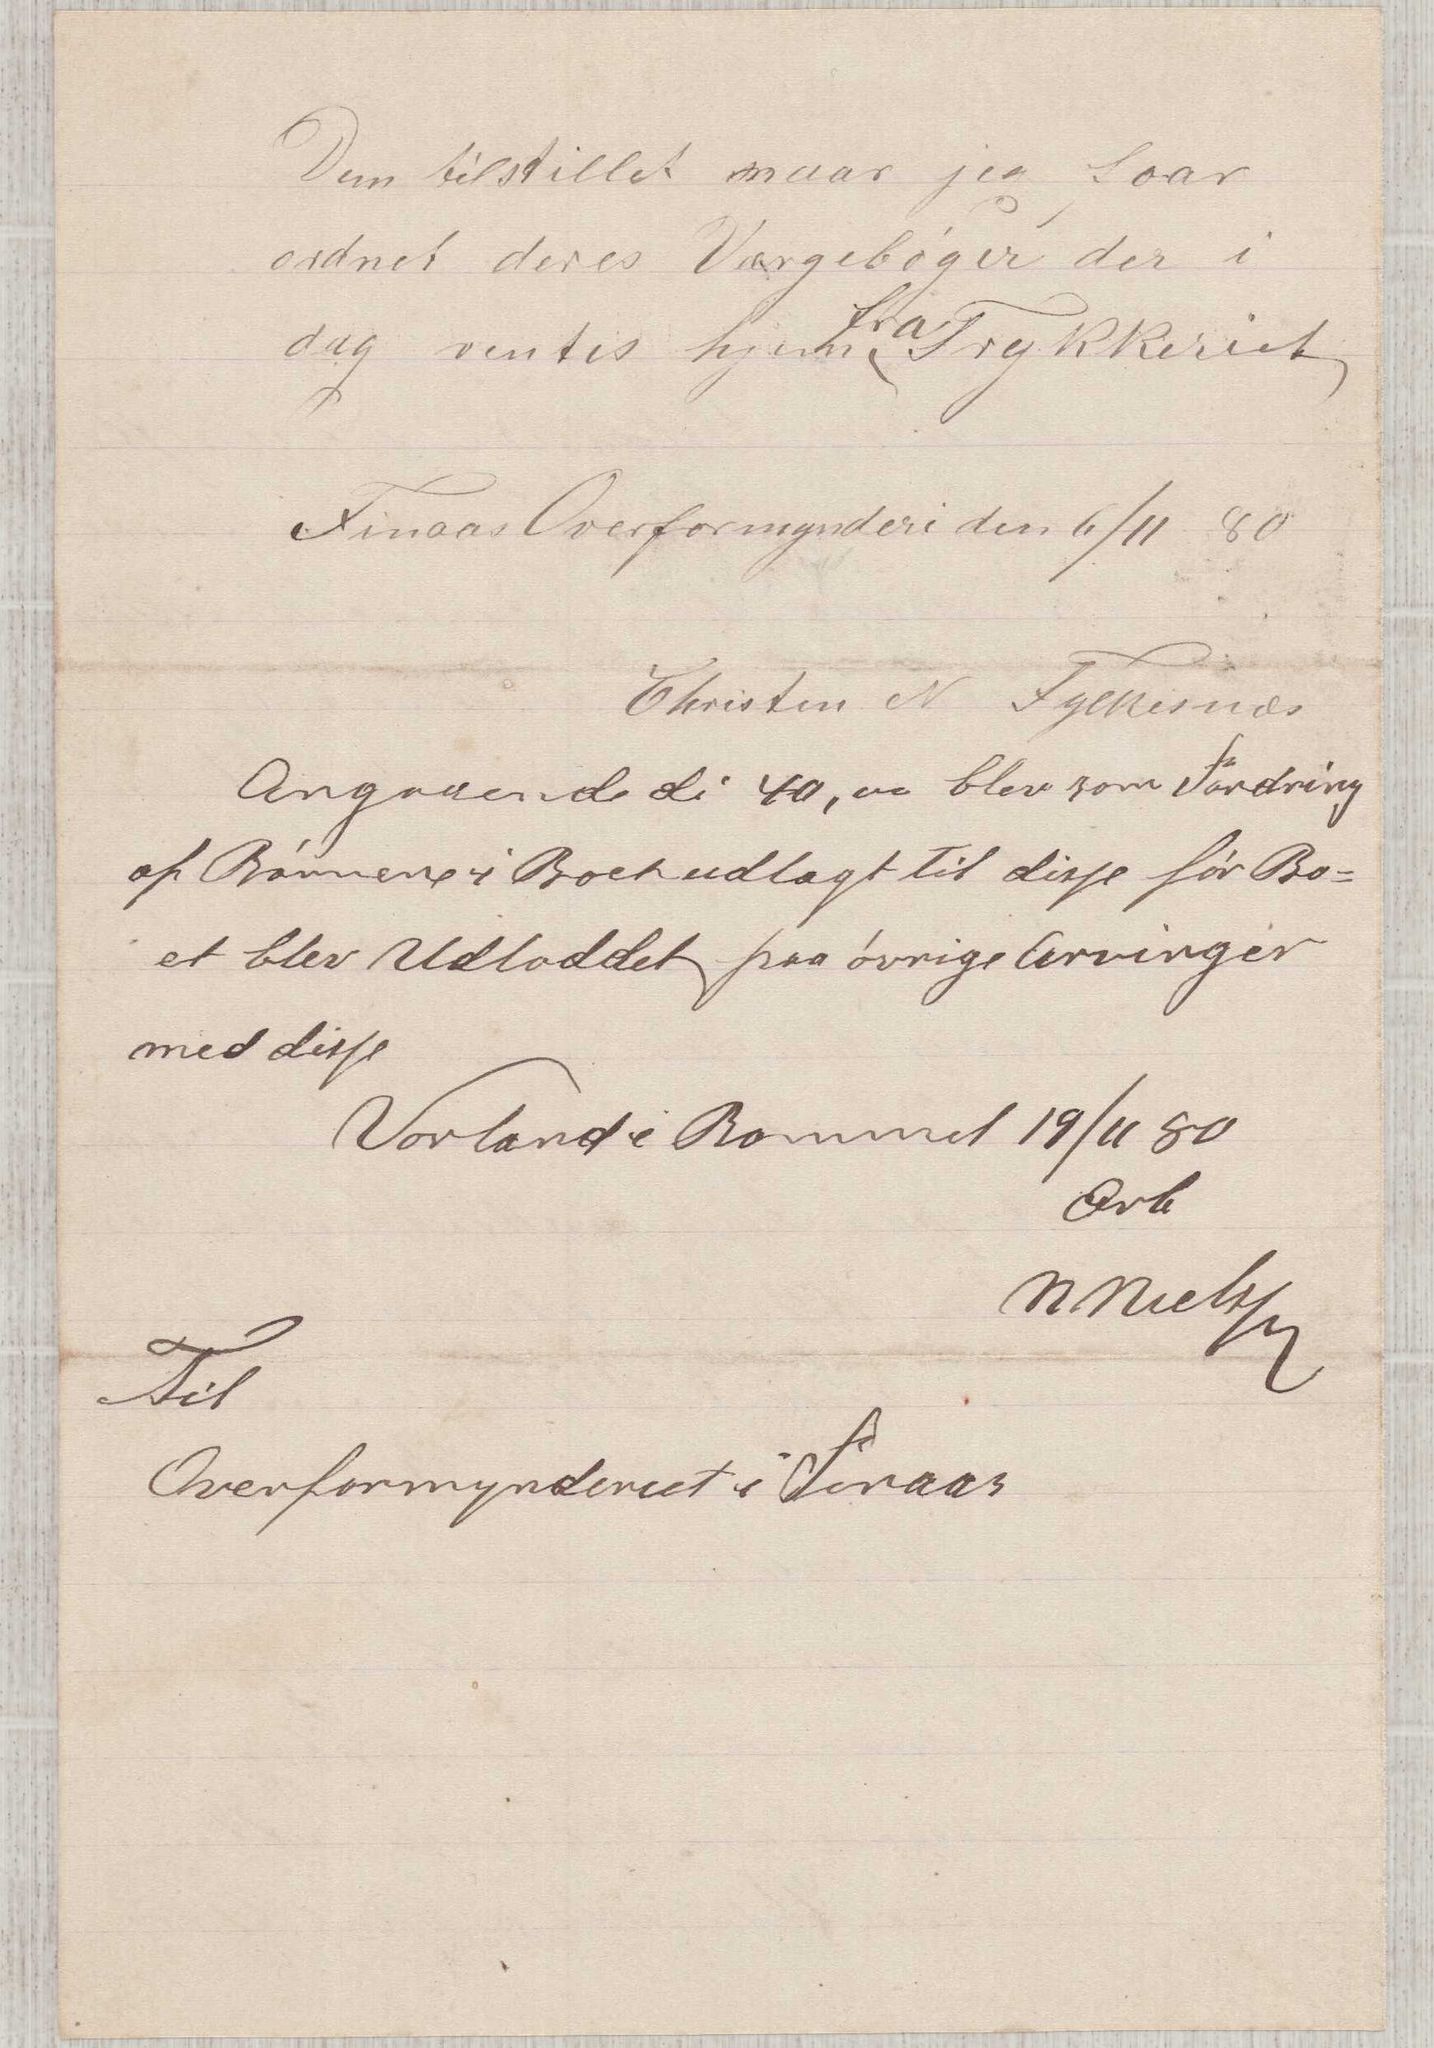 Dem tilstillet naar jeg faar
ordnet deres Værgebøger der i
dag ventis hjem fra Trykkeriet
Finaas Overformynderi den 6/11 80
Christen N Fylkesnæs
Angaaende di 40,00 blev som Fordring
af Børnene i Boet udlagt til disse før Bo=
et blev Udloddet paa øvrige Arvinger
med disse
Vorland i Bømmel 19/11 80
Ærb
N Nielsen
Til
Overformynderiet i Finaas